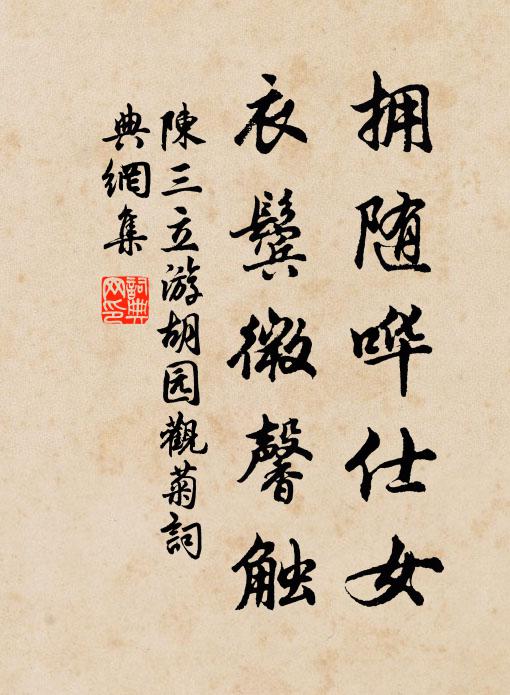 拥随哗仕女
衣鬓微馨触
陳三立游胡园觀菊詞
典網集
詞典网印